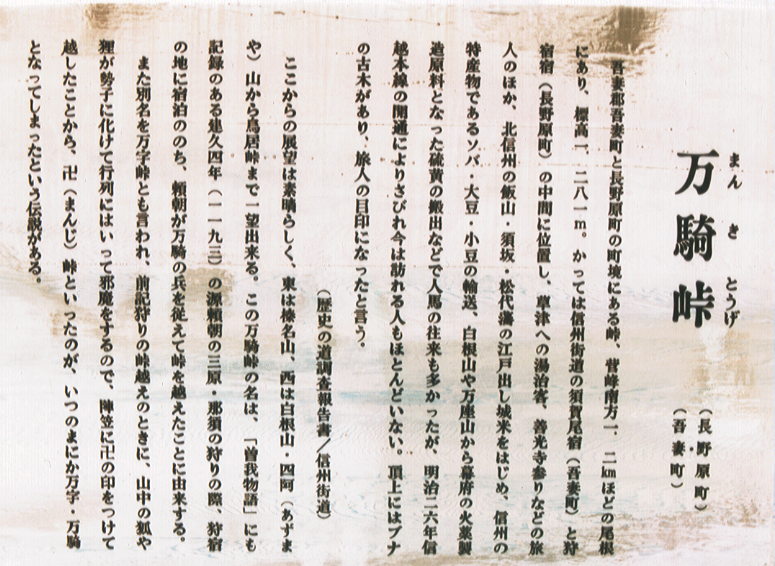 まんきとうげ
万騎峠
（長野原町）
（吾妻町）
吾妻郡吾妻町と長野原町の町境にある峠、菅峰南方一．二㎞ほどの尾根
にあり、標高一、二八一ｍ。かっては信州街道の須賀尾宿（吾妻町）と狩
宿宿（長野原町）の中間に位置し、草津への湯治客、善光寺参りなどの旅
人のほか、北信州の飯山・須坂・松代藩の江戸出し城米をはじめ、信州の
特産物であるソバ・大豆・小豆の輸送、白根山や万座山から幕府の火薬製
造原料となった硫黄の搬出などで人馬の往来も多かったが、明治二六年信
越本線の開通によりさびれ今は訪れる人もほとんどいない。頂上にはブナ
の古木があり、旅人の目印になったと言う。
（歴史の道調査報告書／信州街道）
ここからの展望は素晴らしく、東は榛名山、西は白根山・四阿（あずま
や）山から鳥居峠まで一望出来る。この万騎峠の名は、「曽我物語」にも
記録のある建久四年（一一九三）の源頼朝の三原・那須の狩りの際、狩宿
の地に宿泊ののち、頼朝が万騎の兵を従えて峠を越えたことに由来する。
また別名を万字峠とも言われ、前記狩りの峠越えのときに、山中の狐や
狸が勢子に化けて行列にはいって邪魔をするので、陣笠に卍の印をつけて
越したことから、卍（まんじ）峠といったのが、いつのまにか万字・万騎
となってしまったという伝説がある。